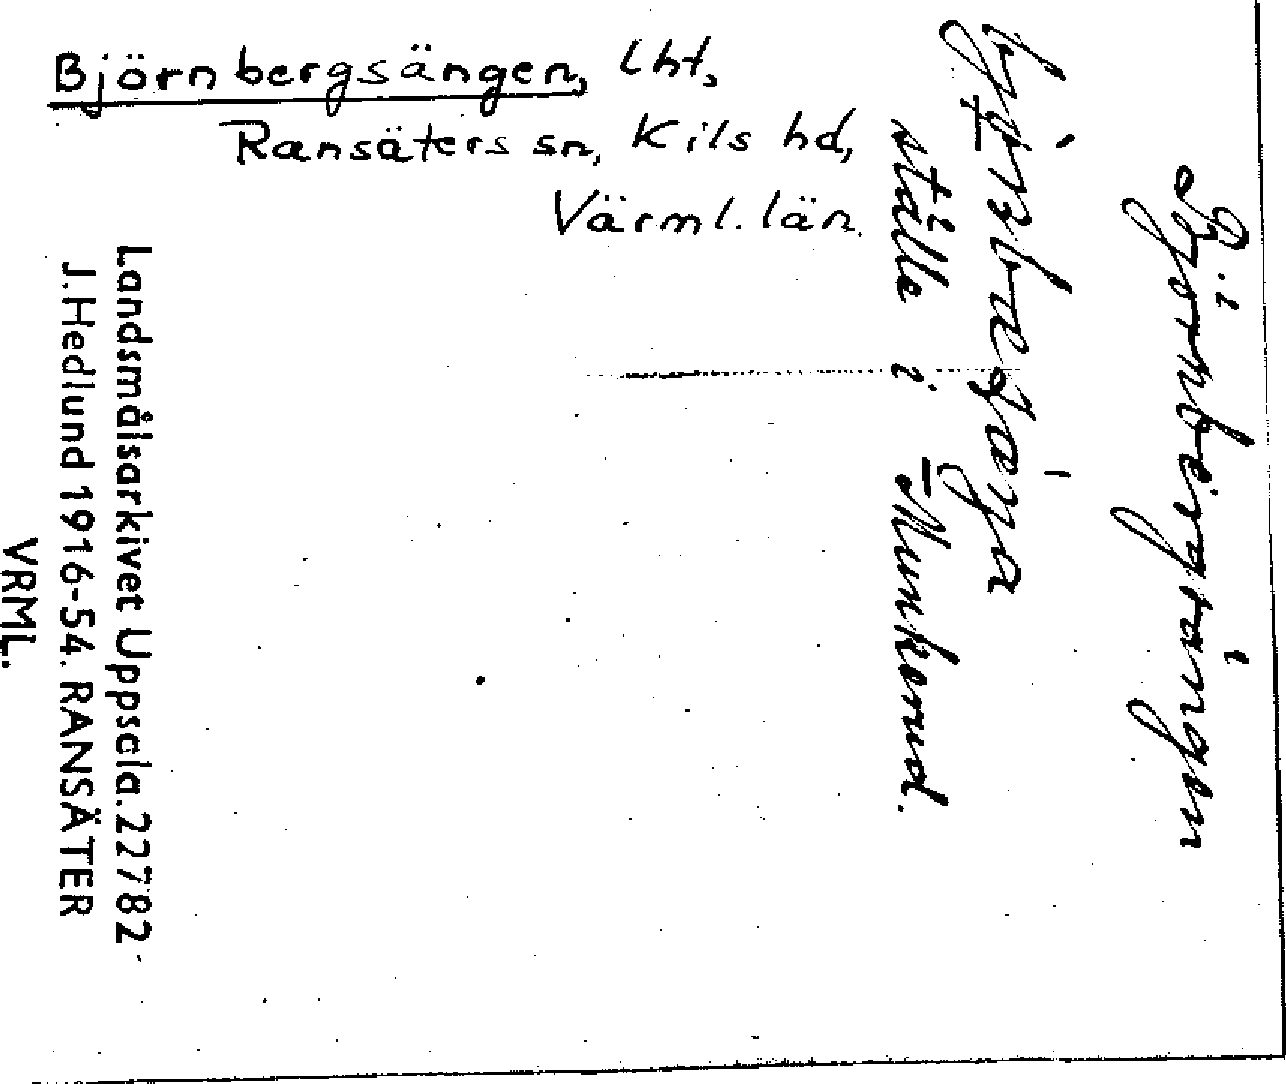 Björnbergsängen, lht,
Ransäters sn, Kils hd,
Värml. län.
Björnbergsängen
ställe i Munkerud.
Landsmålsarkivet Uppsala. 22782
J. Hedlund 1916-54. RANSÄTER
VRML.